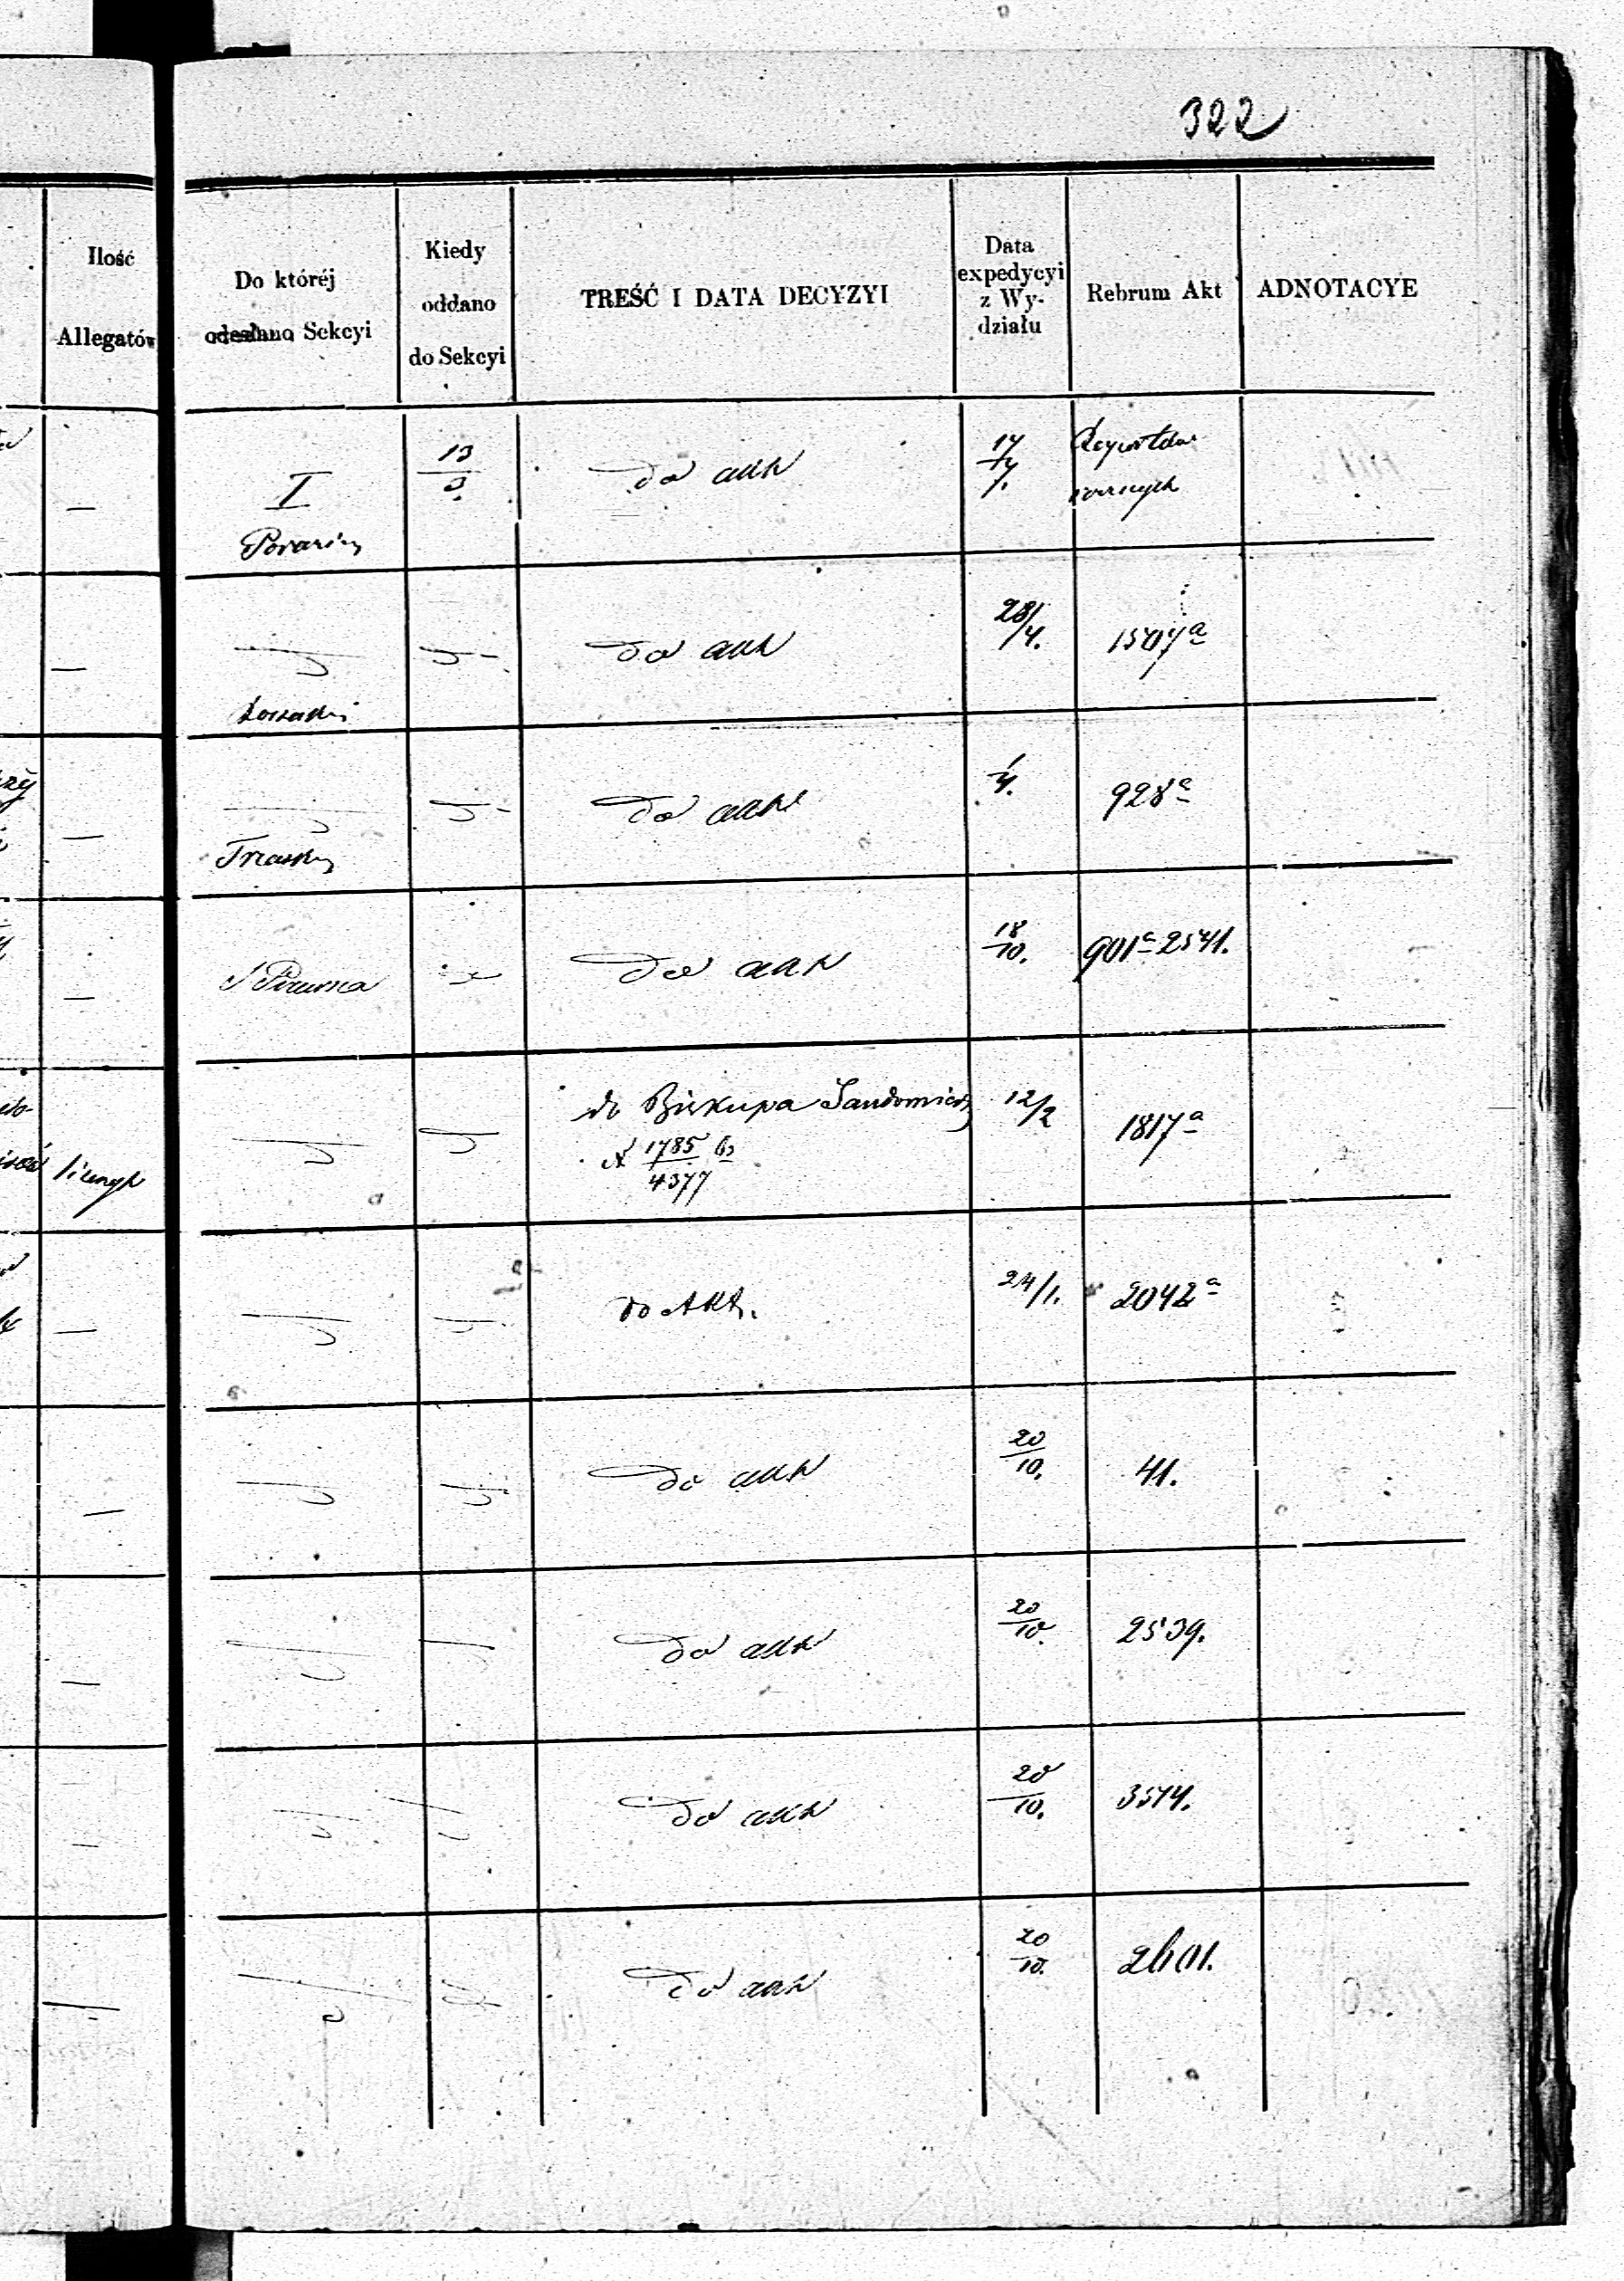 322
Ilość
Allegatów
Do któréj
odesłano Sekcyi
Kiedy
oddano
do Sekcyi
TREŚĆ I DATA DECYZYI
Data
expedycyi
z Wy-
działu
Rebrum Akt
ADNOTACYE
I
13
3.
do akt
17
4.
do akt
28/4.
1507a
do akt
4.
928a
do akt
18
10.
901a 2541.
do Biskupa Sandomier
N 1785
4377
12/2
1817a
do Akt.
24/1.
2042a
do akt
20
10.
41.
do akt
20
10.
2539.
do akt
20
10.
3574.
do akt
20
10.
2601.